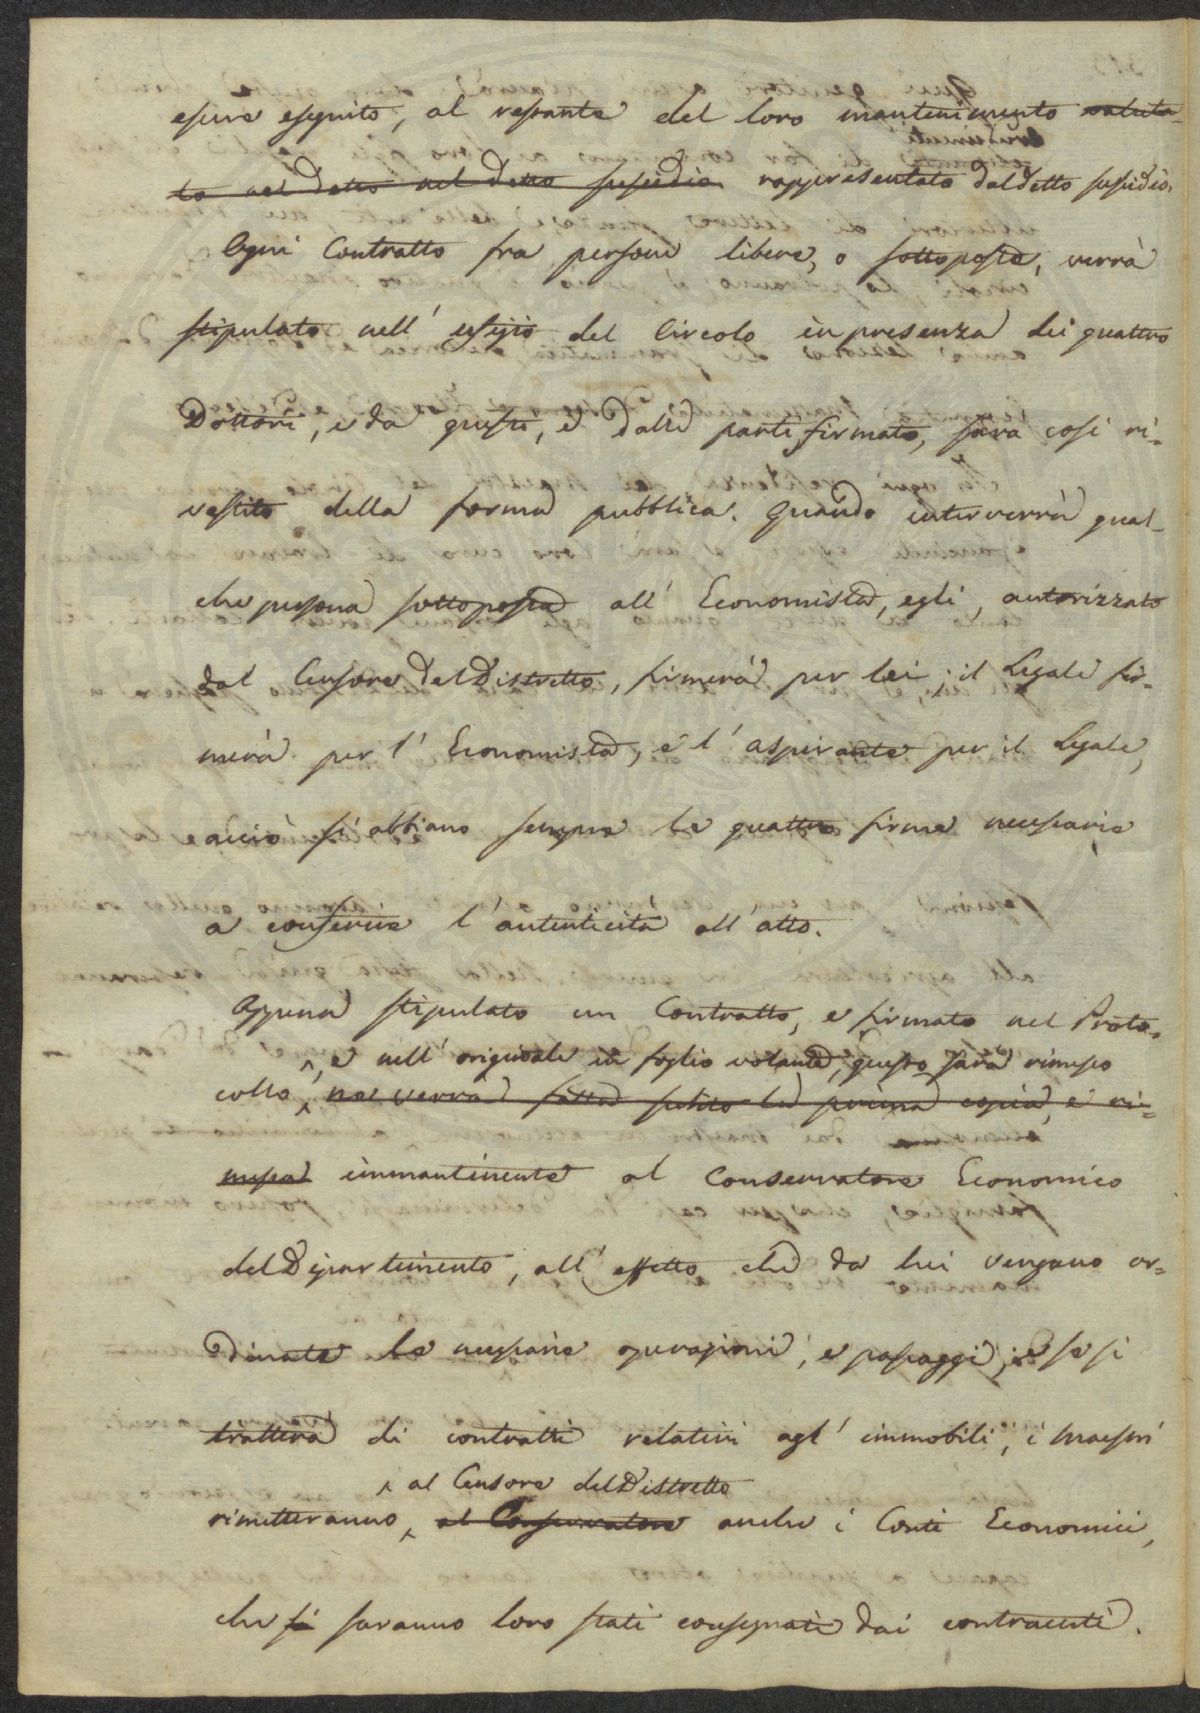 essere eseguito, al restante del loro mantenimento ~~valuta-~~
~~to nel detto nel detto sussidio~~ rappresentato dal detto sussidio.
Ogni Contratto fra persone libere, o sottoposte, verrà
stipulato nell' uffizio del Circolo in presenza dei quattro
Dottori, e da questi, e dalle parti firmato, sarà così ri-
vestito della forma pubblica. Quando interverrà qual-
che persona sottoposta all' Economista, egli, autorizzato
dal Censore del Distretto, firmerà per lei; il Legale fir-
merà per l' Economista, e l' aspirante per il Legale,
acciò si abbiano sempre le quattro firme necessarie
a conferire l' autenticità all' atto.
Appena stipulato un Contratto, e firmato nel Proto-
, e nell' originale in foglio volante, questo sarà rimesso
collo, ~~ne verrà fatta subito la prima copia, e ri-~~
~~messa~~ immantinente al Conservatore Economico
del Dipartimento, all' effetto che da lui vengano or-
dinate le necessarie operazioni, e passaggi; e se si
tratterà di contratti relativi agl' immobili, i Maestri
al Censore del Distretto
rimetteranno, ~~al Conservatore~~ anche i Conti Economici,
che ~~si~~ saranno loro stati consegnati dai contraenti.